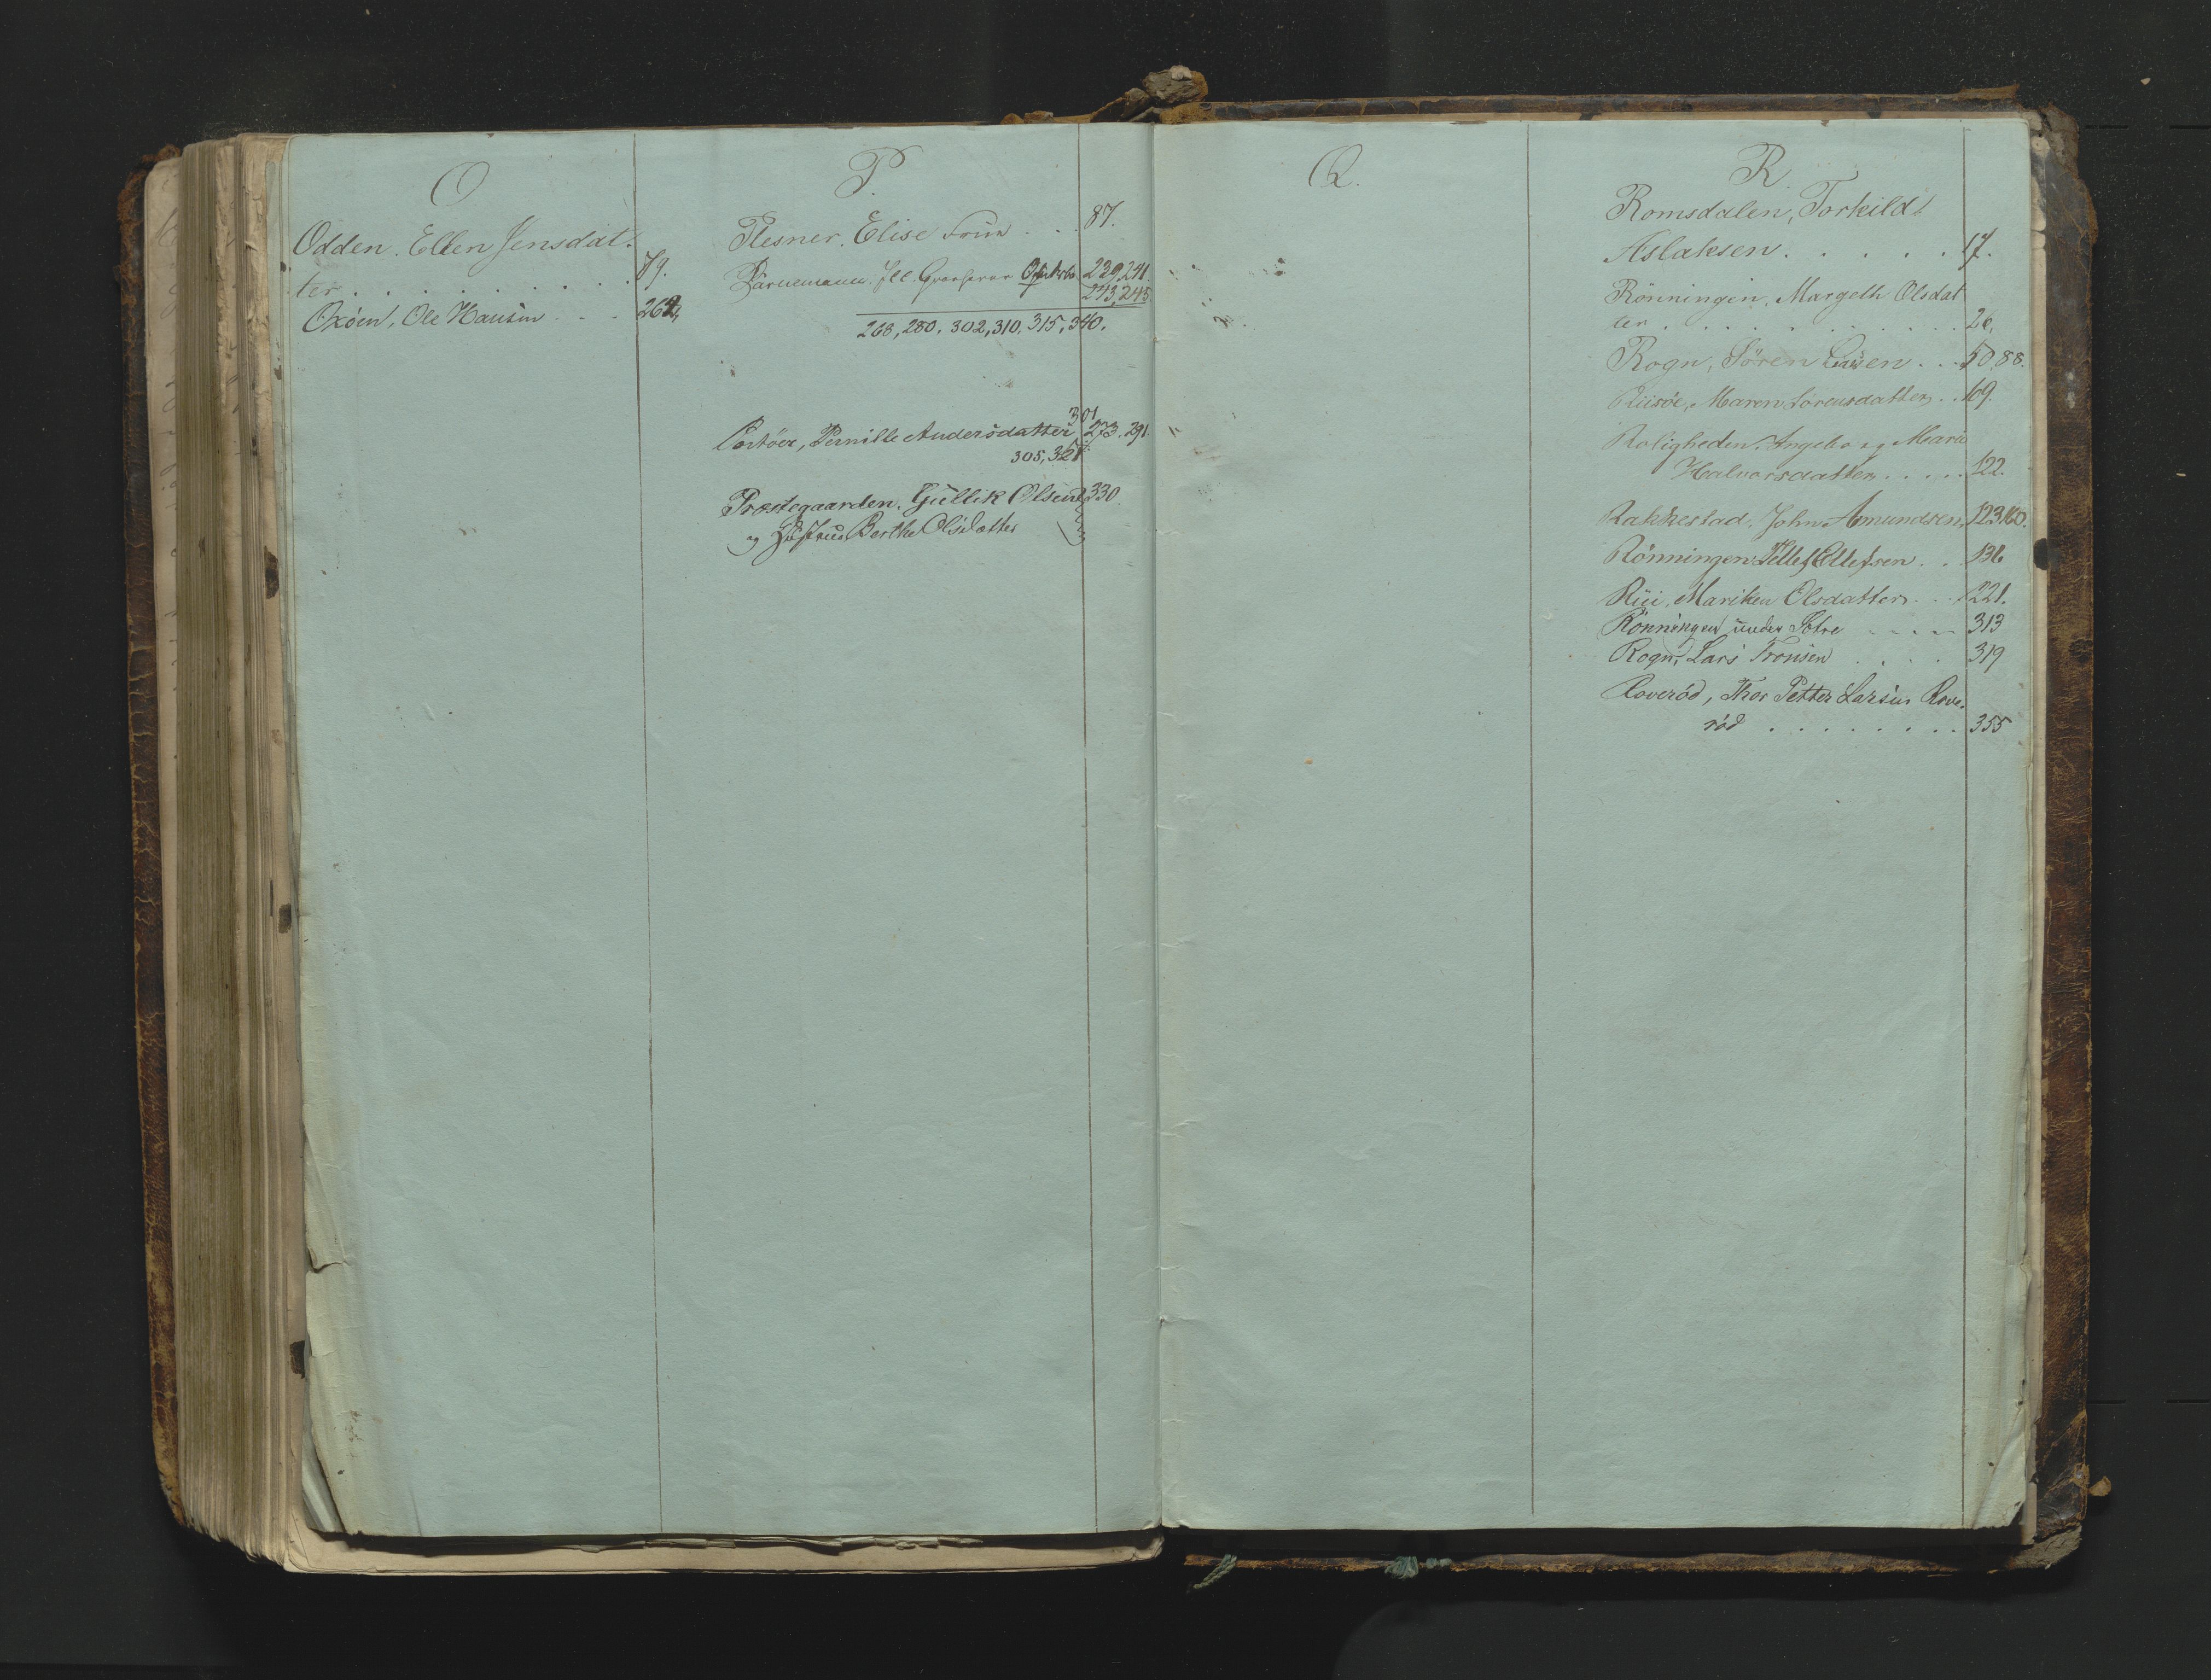 O
Odden. Ellen Jensdat-
ter . . . . . . . . . 79.
Oxöen, Ole Hansen . . . 264,
P.
Plesner. Elise Frue . . . 87.
Ill. 239,241.
243,245
268, 280, 302, 310, 315, 340.
301
Portöer, Pernille Andersdatter 273. 291.
305, 327
Præstegaarden, Gullik Olsen 330
og Hustrue Berthe Olsdatter
Q.
R.
Romsdalen, Torkild
Aslaksen . . . . . 17.
Rönningen, Margeth Olsdat
ter . . . . . . . . . 20.
Rogn, Sören Larsen . . . 50.88.
Riisöe, Maren Sorensdatter . . 109.
Roligheden. Ingebor og Maria
Halvorsdatter . . . . . 122.
Rakkestad. John Amundsen, 123.160.
Rönningen Ellefsen . . 136
Rii, Mariken Olsdatter . . . 221.
Rönningen under Sotre . . . . 313
Rogn, Lars Tronsen . . . . 319
Roveröd, Thor Petter Larsen Rove-
röd . . . . . . . . . 355